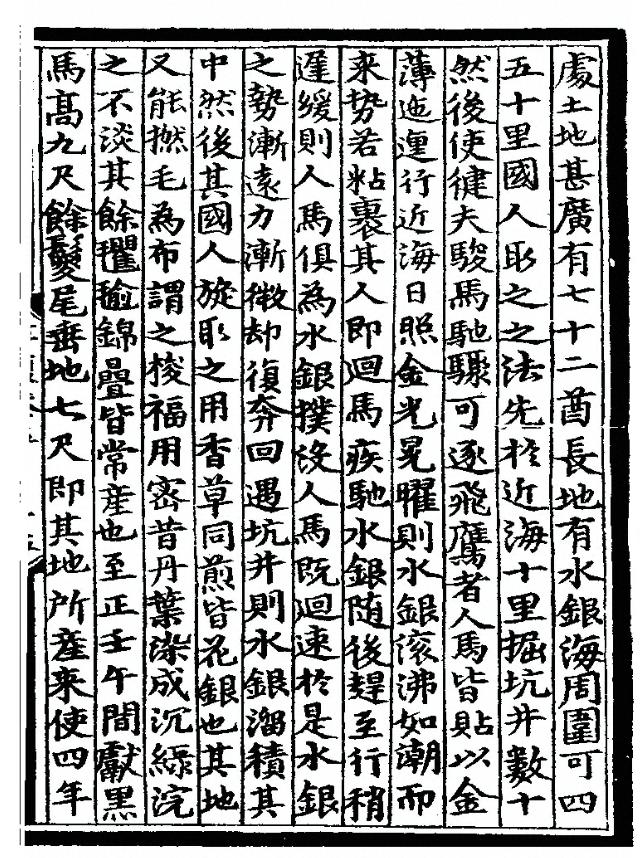 處土地甚廣有七十二酋長地有水銀海周圍可四
五十里國人取之之法先扵近海十里掘坑井數十
然後使健夫駿馬馳驟可逐飛鷹者人馬皆貼以金
薄迤運行近海日照金光晃曜則水銀滚沸如潮而
来势若粘裹其人即迴馬疾馳水銀随後趕至行稍
遅緩則人馬俱為水銀撲没人馬既迴速扵是水銀
之勢漸遠力漸微却復奔回遇坑井則水銀溜積其
中然後其國人旋取之用香草同煎皆花銀也其地
又能撚毛為布謂之梭福用宻昔丹葉染成沉緑浣
之不淡其餘氍毹錦疊皆常産也至正壬午間獻黑
馬髙九尺餘鬃尾垂地七尺即其地所産来使四年